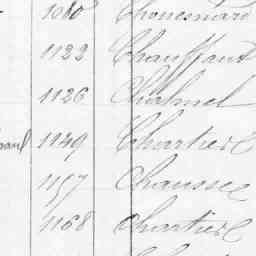 1080 Chouesnard
1122 Chauffaut
1126 Chalmel
1149 Chartier
1157 Chaussee
1168 Chartier